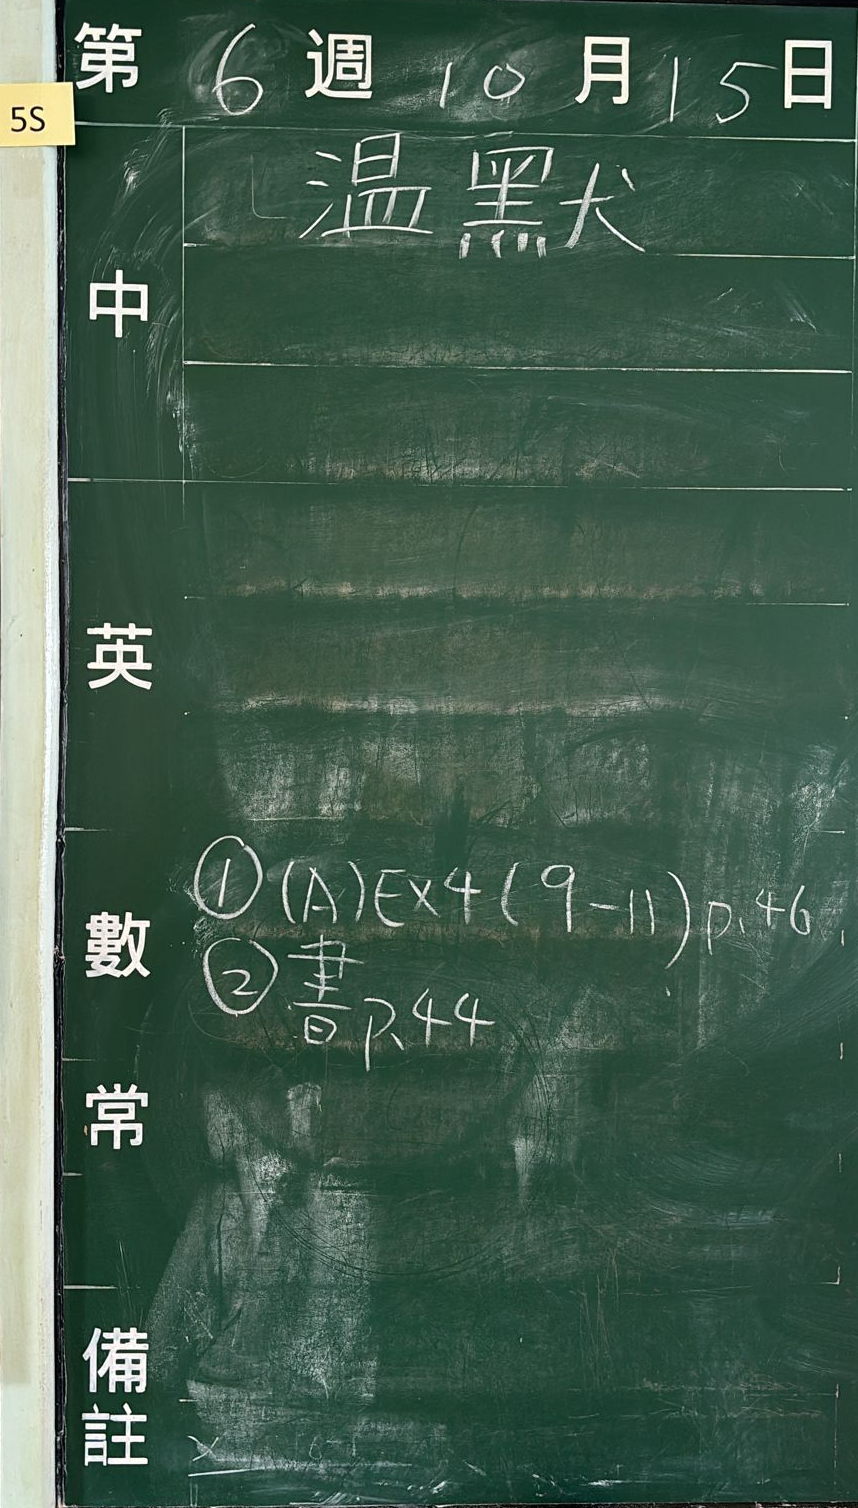 第 6 週 10 月 15 日
5S
中
温 默
英
數
① (A) Ex4 (9-11) p.46
② 書 p.44
常
備註